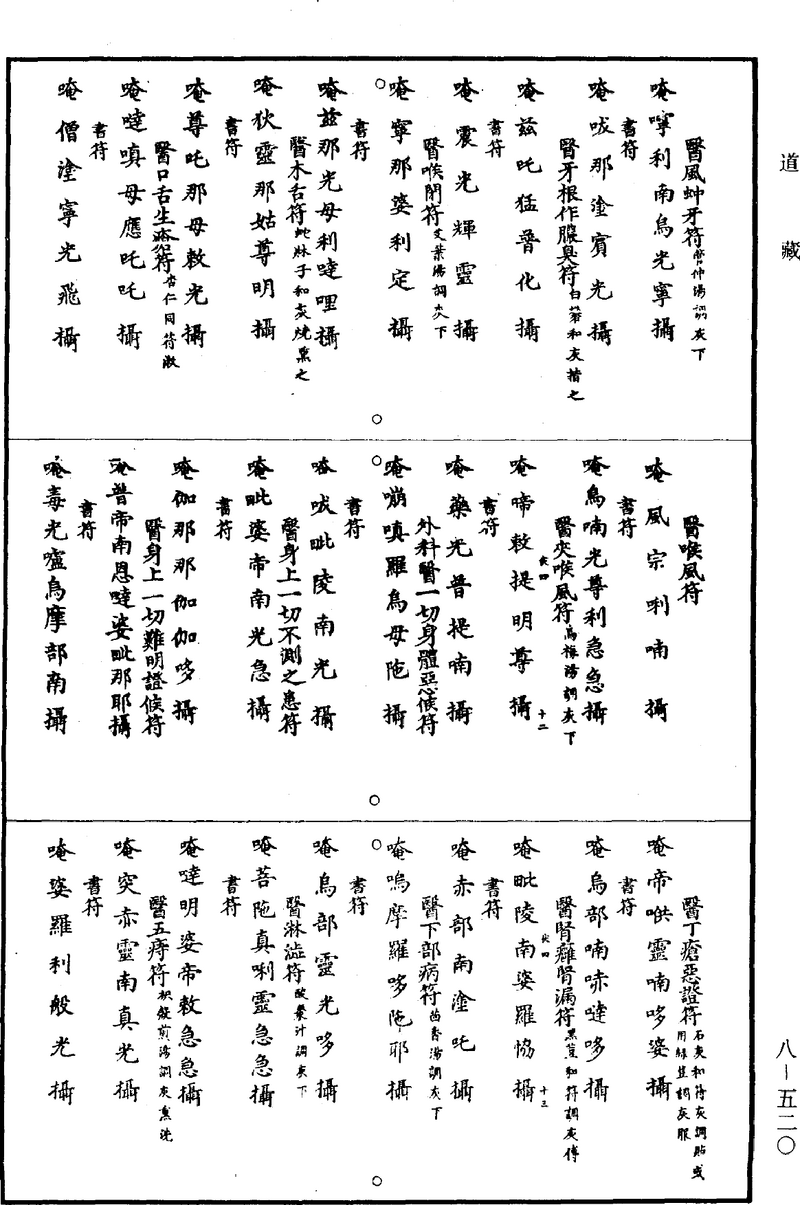 道藏
醫風蚛牙符
唵嚀利南烏光寧攝
書符
唵哱那塗賓光攝
醫牙根作臭符
唵茲吒猛普化攝
書符
唵震光輝靈攝
醫喉閉符 艾葉湯調灰下
唵寧那婆利定攝
書符
唵茲那光母利噠哩攝
醫木舌符 蛇牀子和灰燒熏之
唵狄靈那姑尊明攝
書符
唵尊吒那母敕光攝
醫口舌生瘡符 杏仁同符
唵噠嗔母應吒吒攝
書符
唵僧塗寧光飛攝
醫喉風符
唵風宗唎喃攝
書符
唵烏喃光尊利急急攝
醫夾喉風符 烏梅湯調灰下
唵啼敕提明尊攝
尖四 十二
書符
唵藥光普提喃攝
外科醫一切身體惡候符
唵嗍嗔羅烏母陁攝
書符
唵哱毗陵南光攝
醫身上一切不測之患符
唵毗婆帝南光急攝
書符
唵伽那那伽伽哆攝
醫身上一切難明證候符
唵普帝南恩噠婆毗那耶攝
書符
唵毒光嚧烏摩部南攝
醫丁瘡惡證符 石灰和符灰調貼或用綠豆調灰服
唵帝哄靈喃哆婆攝
書符
唵烏部喃赤噠哆攝
醫腎癰腎漏符 黑荳和符調灰傅
唵毗陵南婆羅恊攝
尖四 十三
書符
唵赤部南塗吒攝
醫下部病符 茴香湯調灰下
唵嗚摩羅哆陁耶攝
書符
唵烏部靈光哆攝
醫淋澁符 酸漿汁調灰下
唵菩陁真唎靈急急攝
書符
唵噠明婆帝敕急急攝
醫五痔符 枳殼煎湯調灰熏洗
唵突赤靈南真光攝
書符
唵婆羅利般光攝
八—五二〇